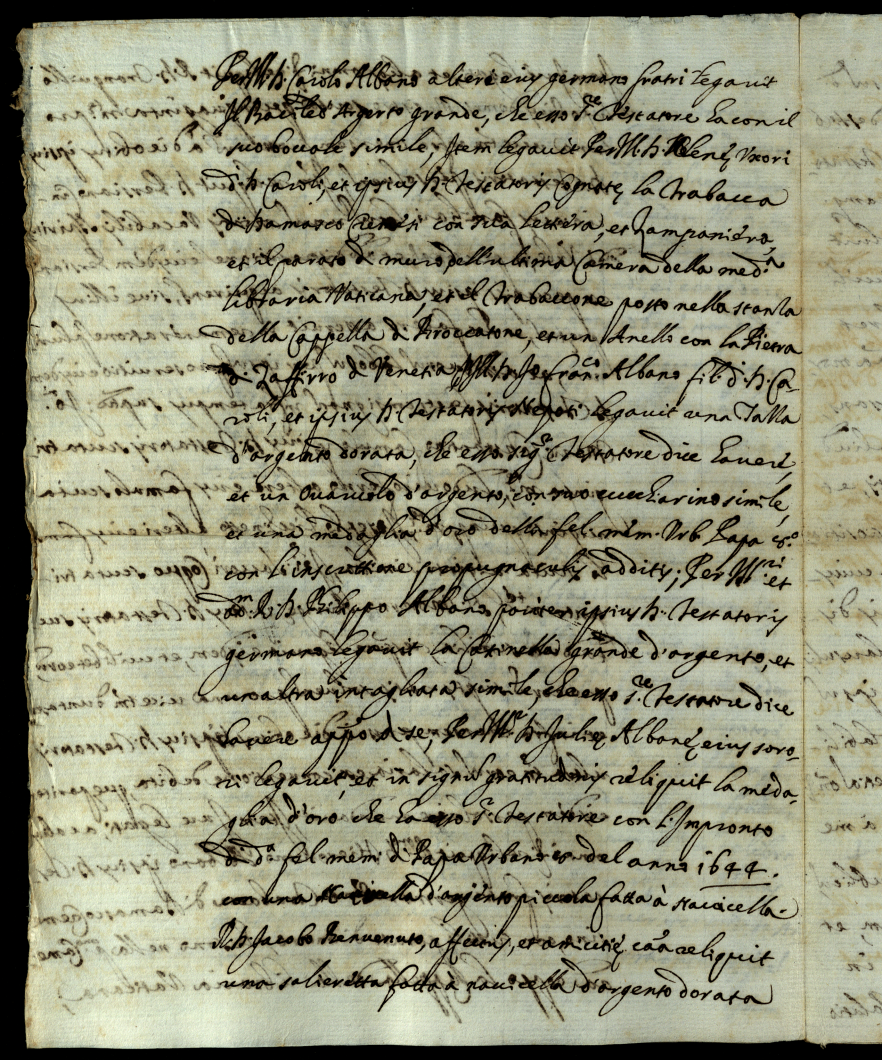 PerIll. D. Carolo Albano alteri eius germano fratri legavit
Il Bacile d'Argento grande, che esso S.re Testatore ha con il
suo bocale simile, Item legavit PerIll. D. Helenę Uxori
d. D. Caroli, et ipsius D. Testatoris Cognatę la Trabacca
di Damasco con sua lettiera, et Zampaniera,
et il parato di muro dell'ultima Camera della med.a
libraria Vaticana, et il Trabaccone posto nella stanza
della Cappella di Broccatone, et un Anello con la Pietra
di Zaffirro di Venetia Ill. D. Jo. Fran.co Albano fil. d. D. Ca-
roli, et ipsius D. Testatoris Nepoti legavit una Tazza
d'argento dorata, che esso Sig.re Testatore dice havere,
et un Ovarolo d'argento, con suo cucchiarino simile,
et una medaglia d'oro della fel. mem. Urb. Papa 8.o
con l'inscrittione propugnaculis additis; Per Ill.ri et
adm. R. D. Philippo Albano pariter ipsius D. Testatoris
germano legavit la Catinella grande d'argento, et
una altra intagliata simile, che esso S.re Testatore dice
havere app.o di se, PerIll. D. Julię Albanę eius soro-
ri legavit, et in signũ gratitudinis reliquit la meda-
glia d'oro che ha esso S.r Testatore con l'Impronto
di d.a fel. mem. di Papa Urbano 8. del anno 1644.
con una d'argento piccola fatta à Navicella.
R. D. Jacobo Benvenuto, affectus, et amicitię cãa reliquit
una salieretta fatta à navicella d'argento dorata